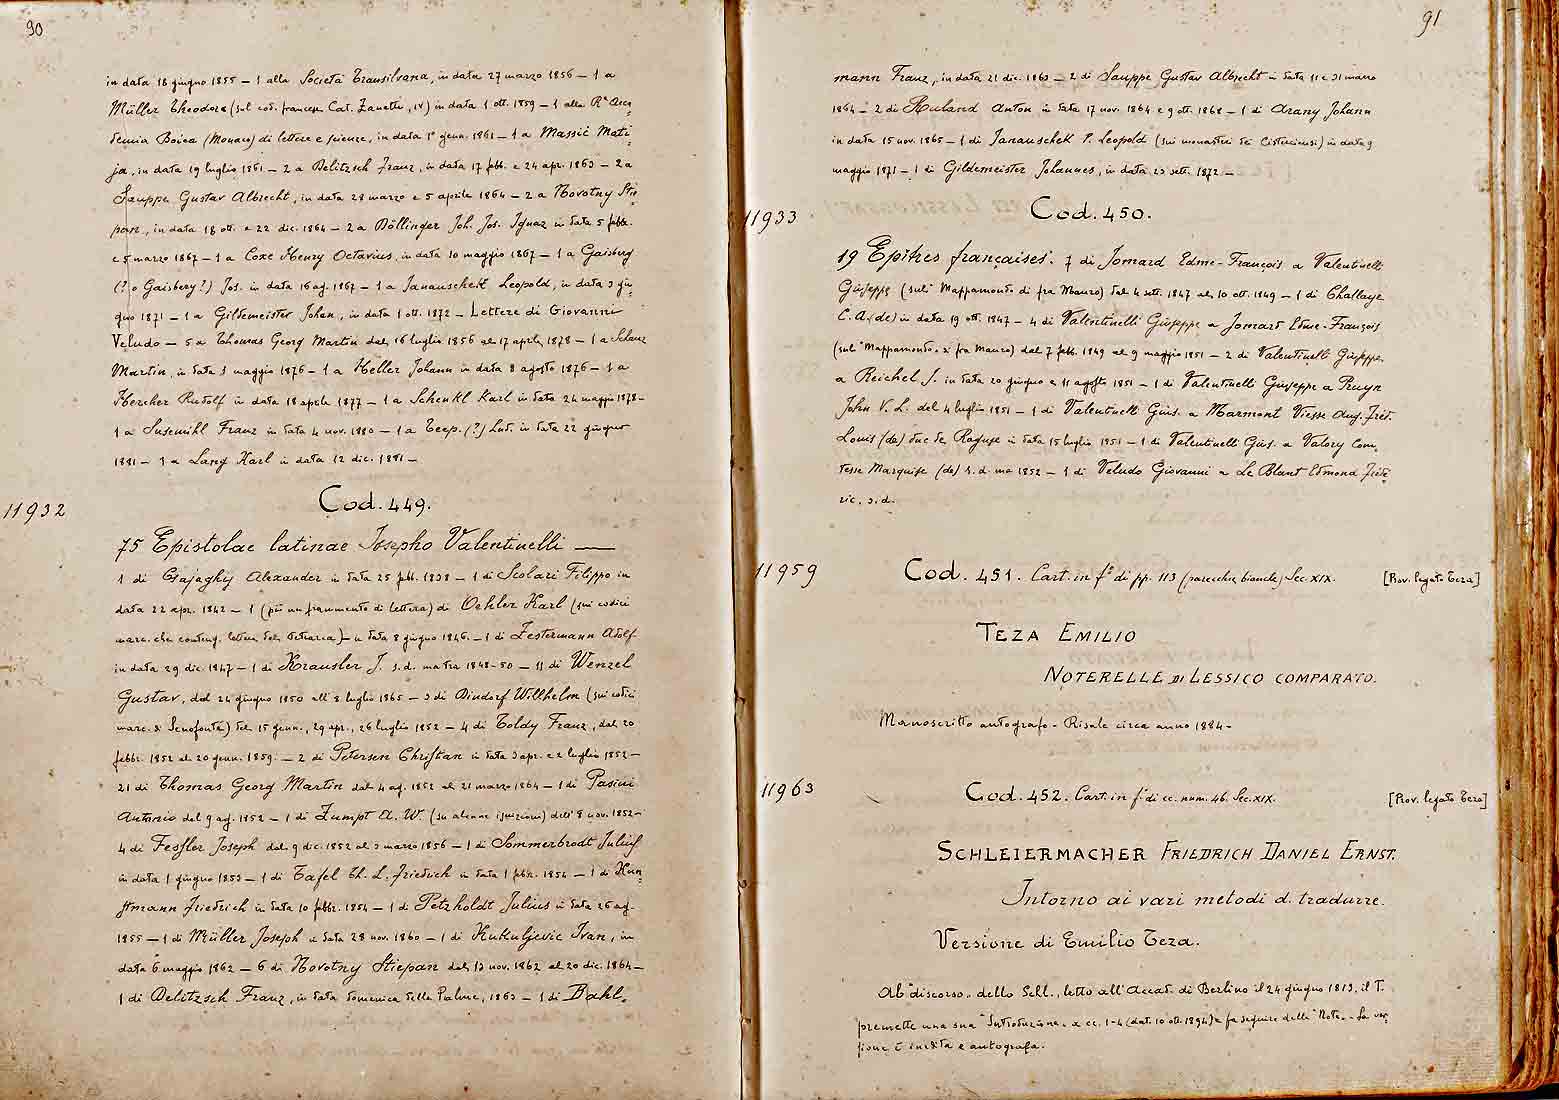 90
in data 18 giugno 1855 – 1 alla Società Transilvana, in data 27 marzo 1856 – 1 a
Müller Theodore (sul cod. francese Cat. Zanetti, IV) in data 1 ott. 1859 – 1 alla Rª Acca-
demia Boica (Monaco) di lettere e scienze, in data 1º genn. 1861 – 1 a Massić Mati-
ja, in data 19 luglio 1861 – 2 a Delitzsch Franz, in data 17 febb. e 24 apr. 1863 – 2 a
Sauppe Gustav Albrecht, in data 28 marzo e 5 aprile 1864 – 2 a Novotny Stie-
pan, in data 18 ott. e 22 dic. 1864 – 2 a Döllinger Joh. Jos. Ignaz in data 5 febbr.
e 5 marzo 1867 – 1 a Coxe Henry Octavius, in data 10 maggio 1867 – 1 a Gaisberg
(? o Gaisbery?) Jos. in data 16 ag. 1867 – 1 a Janauschek Leopold, in data 3 giu-
gno 1871 – 1 a Gildemeister Johan, in data 1 ott. 1872 – Lettere di Giovanni
Veludo – 5 a Thomas Georg Martin dal 16 luglio 1856 al 17 aprile 1878 – 1 a Schanz
Martin, in data 3 maggio 1876 – 1 a Heller Johann in data 8 agosto 1876 – 1 a
Hercher Rudolf in data 18 aprile 1877 – 1 a Schenkl Karl in data 24 maggio 1878 –
1 a Susemihl Franz in data 4 nov. 1880 – 1 a (?) Lud. in data 22 giugno
1881 – 1 a Lang Karl in data 12 dic. 1881 –
11932
Cod. 449.
75 Epistolae latinae Josepho Valentinelli —
1 di Gajaghy Alexander in data 25 febb. 1838 – 1 di Scolari Filippo in
data 22 apr. 1842 – 1 (più un frammento di lettera) di Oehler Karl (sui codici
marc. che conteng. lettere ) – in data 8 giugno 1846. – 1 di Zestermann Adolf
in data 29 dic. 1847 – 1 di Krausler J. s.d. ma tra 1848-50 – 11 di Wenzel
Gustav, dal 24 giugno 1850 all' 8 luglio 1865 – 3 di Dindorf Willhelm (sui codici
marc. di Senofonte) del 15 genn., 29 apr., 26 luglio 1852 – 4 di Toldy Franz, dal 20
febbr. 1852 al 20 genn. 1859. – 2 di Petersen Christian in data 3 apr. e 2 luglio 1852 –
21 di Thomas Georg Martin dal 4 ag. 1852 al 21 marzo 1864 – 1 di Pasini
Antonio del 9 ag. 1852 – 1 di Zumpt A. W. (su alcune iscrizioni) dell' 8 nov. 1852 –
4 di Fessler Joseph dal 9 dic. 1852 al 2 marzo 1856 – 1 di Sommerbrodt Julius
in data 1 giugno 1853 – 1 di Tafel Th. L. Friedrich in data 1 fbr. 1854 – 1 di Kun-
stmann Friedrich in data 10 febbr. 1854 – 1 di Petzholdt Julius in data 26 ag.
1855 – 1 di Müller Joseph in data 28 nov. 1860 – 1 di Kukuljevic Ivan, in
data 6 maggio 1862 – 6 di Novotny Stiepan dal 13 nov. 1862 al 20 dic. 1864 –
1 di Delitzsch Franz, in data domenica delle Palme, 1863 – 1 di Bahl-
91
mann Franz, in data 21 dic. 1863 – 2 di Sauppe Gustav Albrecht – data 11 e 31 marzo
1864 – 2 di Ruland Anton in data 17 nov. 1864 e 9 ott. 1868 – 1 di Arany Johann
in data 15 nov. 1865 – 1 di Janauschek P. Leopold (sui monasteri dei Cisterciensi) in data 9
maggio 1871 – 1 di Gildemeister Johannes, in data 23 sett. 1872 –
11933
Cod. 450.
19 Epîtres françaises. 7 di Jomard Edme-François a Valentinelli
Giuseppe (sul Mappamondo di fra Mauro) dal 4 sett. 1847 al 10 ott. 1849 – 1 di Challaye
C. A. (de) in data 19 ott. 1847 – 4 di Valentinelli Giuseppe a Jomard Edme-François
(sul "Mappamondo" di fra Mauro) dal 7 febb. 1849 al 9 maggio 1851 – 2 di Valentinelli Giuseppe
a Reichel J. in data 20 giugno e 11 agosto 1851 – 1 di Valentinelli Giuseppe a Pruyn
John V. L. del 4 luglio 1851 – 1 di Valentinelli Gius. a Marmont Viesse Aug. Fréd.
Louis (de) duc de Raguse in data 15 luglio 1851 – 1 di Valentinelli Gius. a Valory Com-
tesse Marquise (de) s. d. ma 1852 – 1 di Veludo Giovanni a Le Blant Edmond Fréde-
ric, s.d.
11959
Cod. 451. Cart. in fº di pp. 113 (parecchie bianche) Sec. XIX. [Prov. legato Teza]
TEZA EMILIO
NOTERELLE DI LESSICO COMPARATO.
Manoscritto autografo – Risale circa anno 1884 –
11963
Cod. 452. Cart. in fº di cc. num. 46. Sec. XIX. [Prov. legato Teza]
SCHLEIERMACHER FRIEDRICH DANIEL ERNST.
Intorno ai vari metodi d. tradurre.
Versione di Emilio Teza.
Al "discorso" dello Schl., letto all'Accad. di Berlino il 24 giugno 1813, il T.
premette una sua "Introduzione" a cc. 1-4 (dat. 10 ott. 1894) e fa seguire delle "Note". – La ver-
sione è inedita e autografa.